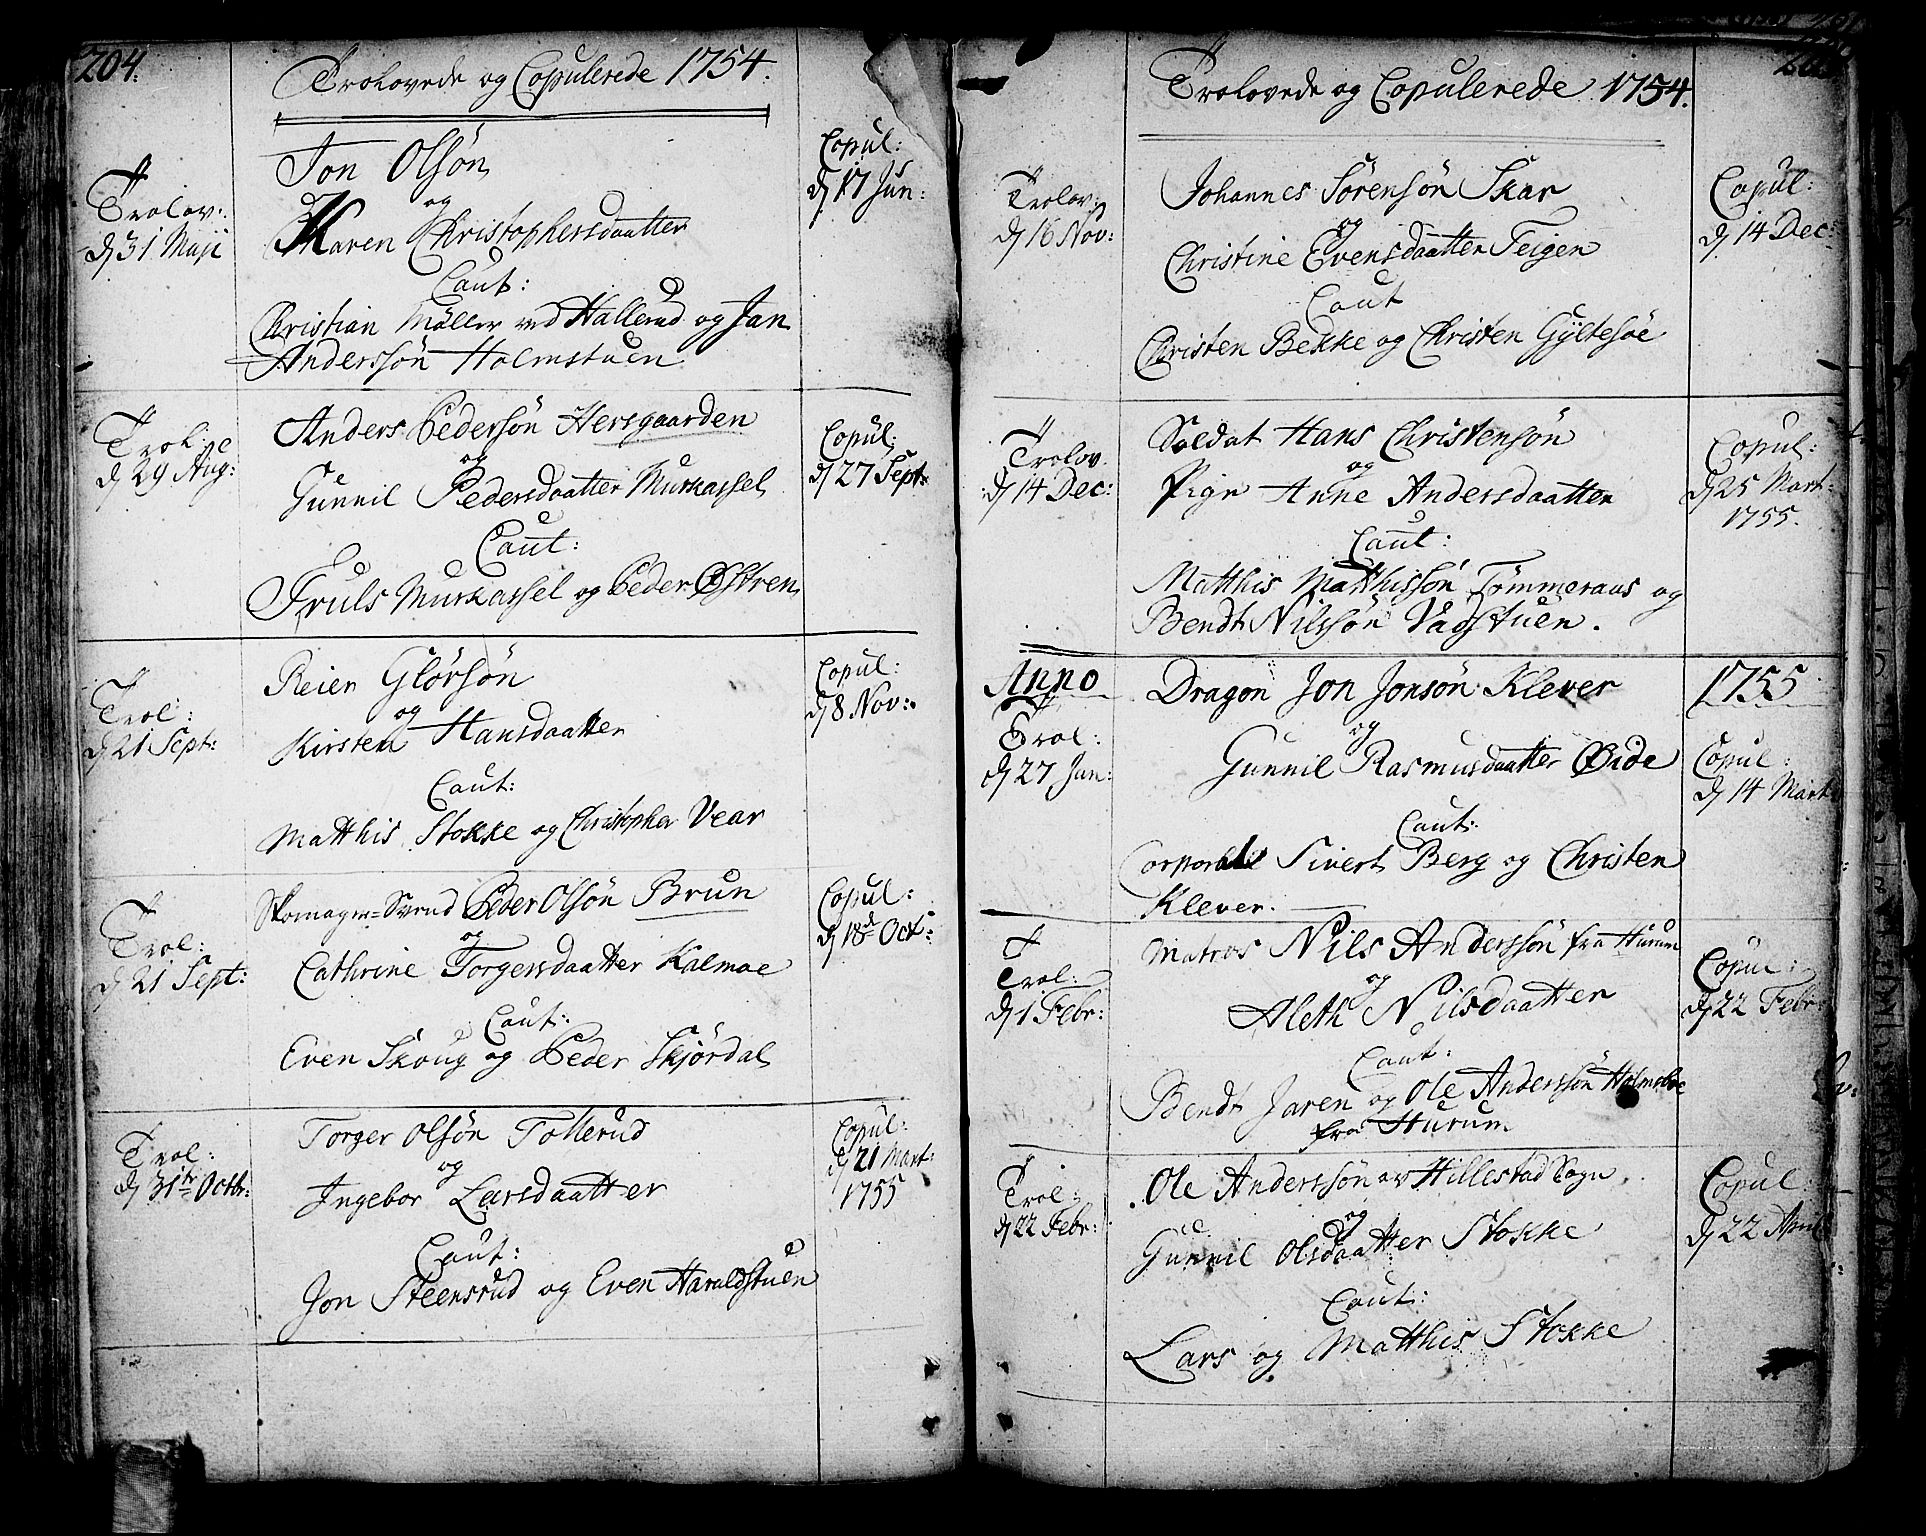 204.
Trolovede og Copulerede 1754.
Trolov:
d 31 Maji
Jon Olsøn
og
Karen Christophersdaatter
Caut:
Christian Møller ved Hallerud og Jan
Anderssøn Holmstuen
Copul:
d 17 Jun:
Trol:
d 29 Aug:
Anders Pedersøn Hersgaarden
og
Gunnil Pedersdaatter Murkassel
Caut:
Truls Murkassel og Peder Østren
Copul:
d 27 Sept:
Trol:
d 21 Sept:
Reier Glørsøn
og
Kirsten Hansdaatter
Caut:
Matthis Stokke og Christopher Vear
Copul:
d 8 Nov:
Trol:
d 21 Sept:
Skomager-Svend Peder Olsøn Brun
og
Cathrine Torgersdaatter Kalmoe
Caut:
Even Skoug og Peder Skjørdal
Copul:
d 18de Oct:
Trol:
d 31te Octbr:
Torger Olsøn Tollerud
og
Ingebor Larsdaatter
Caut:
Jon Steensrud og Even Haraldstuen
Copul:
d 21 Mart:
1755
Trolovede og Copulerede 1754.
Trolov:
d 16 Nov:
Johannes Sørensøn Skar
og
Christine Evensdaatter Teigen
Caut
Christen Bekke og Christen Gyltesøe
Copul:
d 14 Dec:
Trolov.
d 14 Dec:
Soldat Hans Christensøn
og
Pige Anne Andersdaatter
Caut:
Matthis Matthissøn Tømmeraas og
Bendt Nilssøn Vadstuen.
Copul:
d 25 Mart:
1755.
Anno
Trol:
d 27 Jan:
Dragon Jon Jonsøn Klever
og
Gunnil Rasmusdaatter Øide
Caut:
Corporal Sivert Berg og Christen
Klever.
1755
Copul:
d 14 Mart
Trol:
d 1 Febr:
Matros Nils Anderssøn fra Hurum
og
Aleth Nilsdaatter
Caut:
Bendt Jaren og Ole Anderssøn Holmsboe
fra Hurum
Copul:
d 22 Febr:
Trol:
d 22 Febr:
Ole Anderssøn av Hillestad Sogn
og
Gunnil Olsdaatter Stokke
Caut:
Lars og Matthis Stokke
Copul
d 22 April